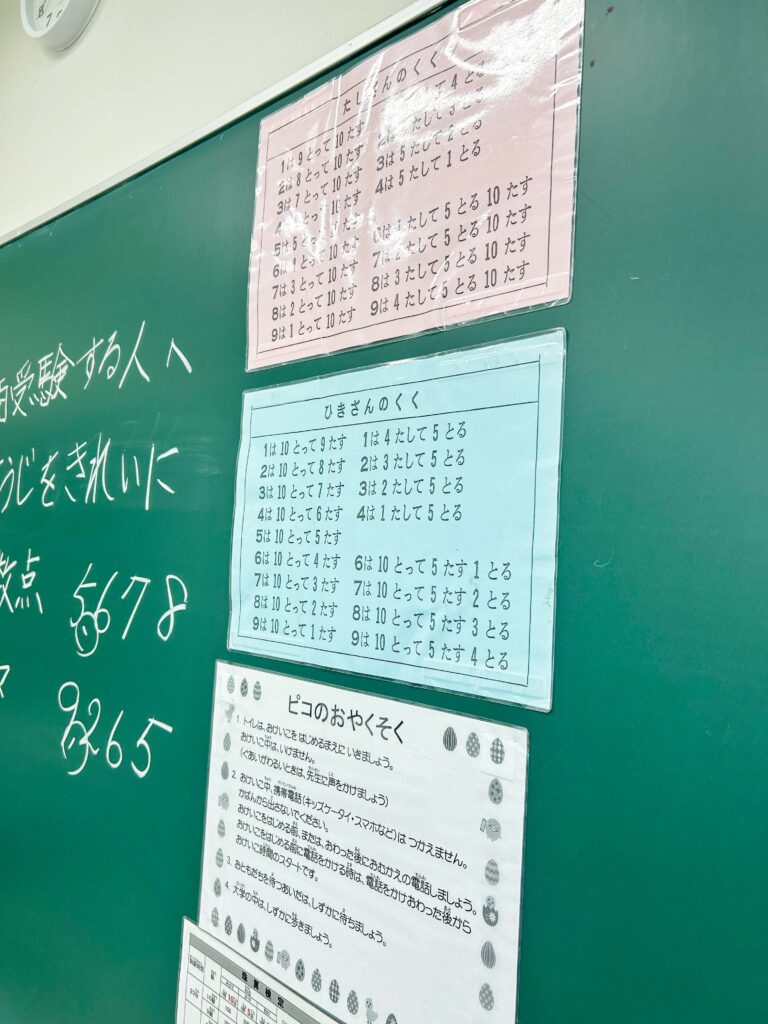 受験する人へ
うじをきれいに
点 5678
9.265
たしざんのくく
1は 9 とって 10 たす
2は 8 とって 10 たす
3は 7 とって 10 たす
4は とって 10 たす
5は 5 とって 10 たす
6は 4 とって 10 たす
7は 3 とって 10 たす
8は 2 とって 10 たす
9は 1 とって 10 たす
たして 4 とる
2は たして 3 とる
3は 5 たして 2 とる
4は 5 たして 1 とる
6は 1 たして 5 とる 10 たす
7は 2 たして 5 とる 10 たす
8は 3 たして 5 とる 10 たす
9は 4 たして 5 とる 10 たす
ひきざんのくく
1は 10 とって 9 たす
2は 10 とって 8 たす
3は 10 とって 7 たす
4は 10 とって 6 たす
5は 10 とって 5 たす
6は 10 とって 4 たす
7は 10 とって 3 たす
8は 10 とって 2 たす
9は 10 とって 1 たす
1は 4 たして 5 とる
2は 3 たして 5 とる
3は 2 たして 5 とる
4は 1 たして 5 とる
6は 10 とって 5 たす 1 とる
7は 10 とって 5 たす 2 とる
8は 10 とって 5 たす 3 とる
9は 10 とって 5 たす 4 とる
ピコのおやくそく
1. トイレは、おけいこを はじめるまえに いきましょう。
おけいこ中は、いけません。
(ぐあいがわるいときは、先生に声をかけましょう)
2. おけいこ中、携帯電話(キッズケータイ・スマホなど)は つかえません。
かばんから出さないでください。
おけいこをはじめる前、または、おわった後におむかえの電話しましょう。
おけいこをはじめる前に電話をかける時は、電話をかけおわった後から
おけいこ時間のスタートです。
3. おともだちを待つあいだは、しずかに待ちましょう。
4. 大学の中は、しずかに歩きましょう。
珠算検定